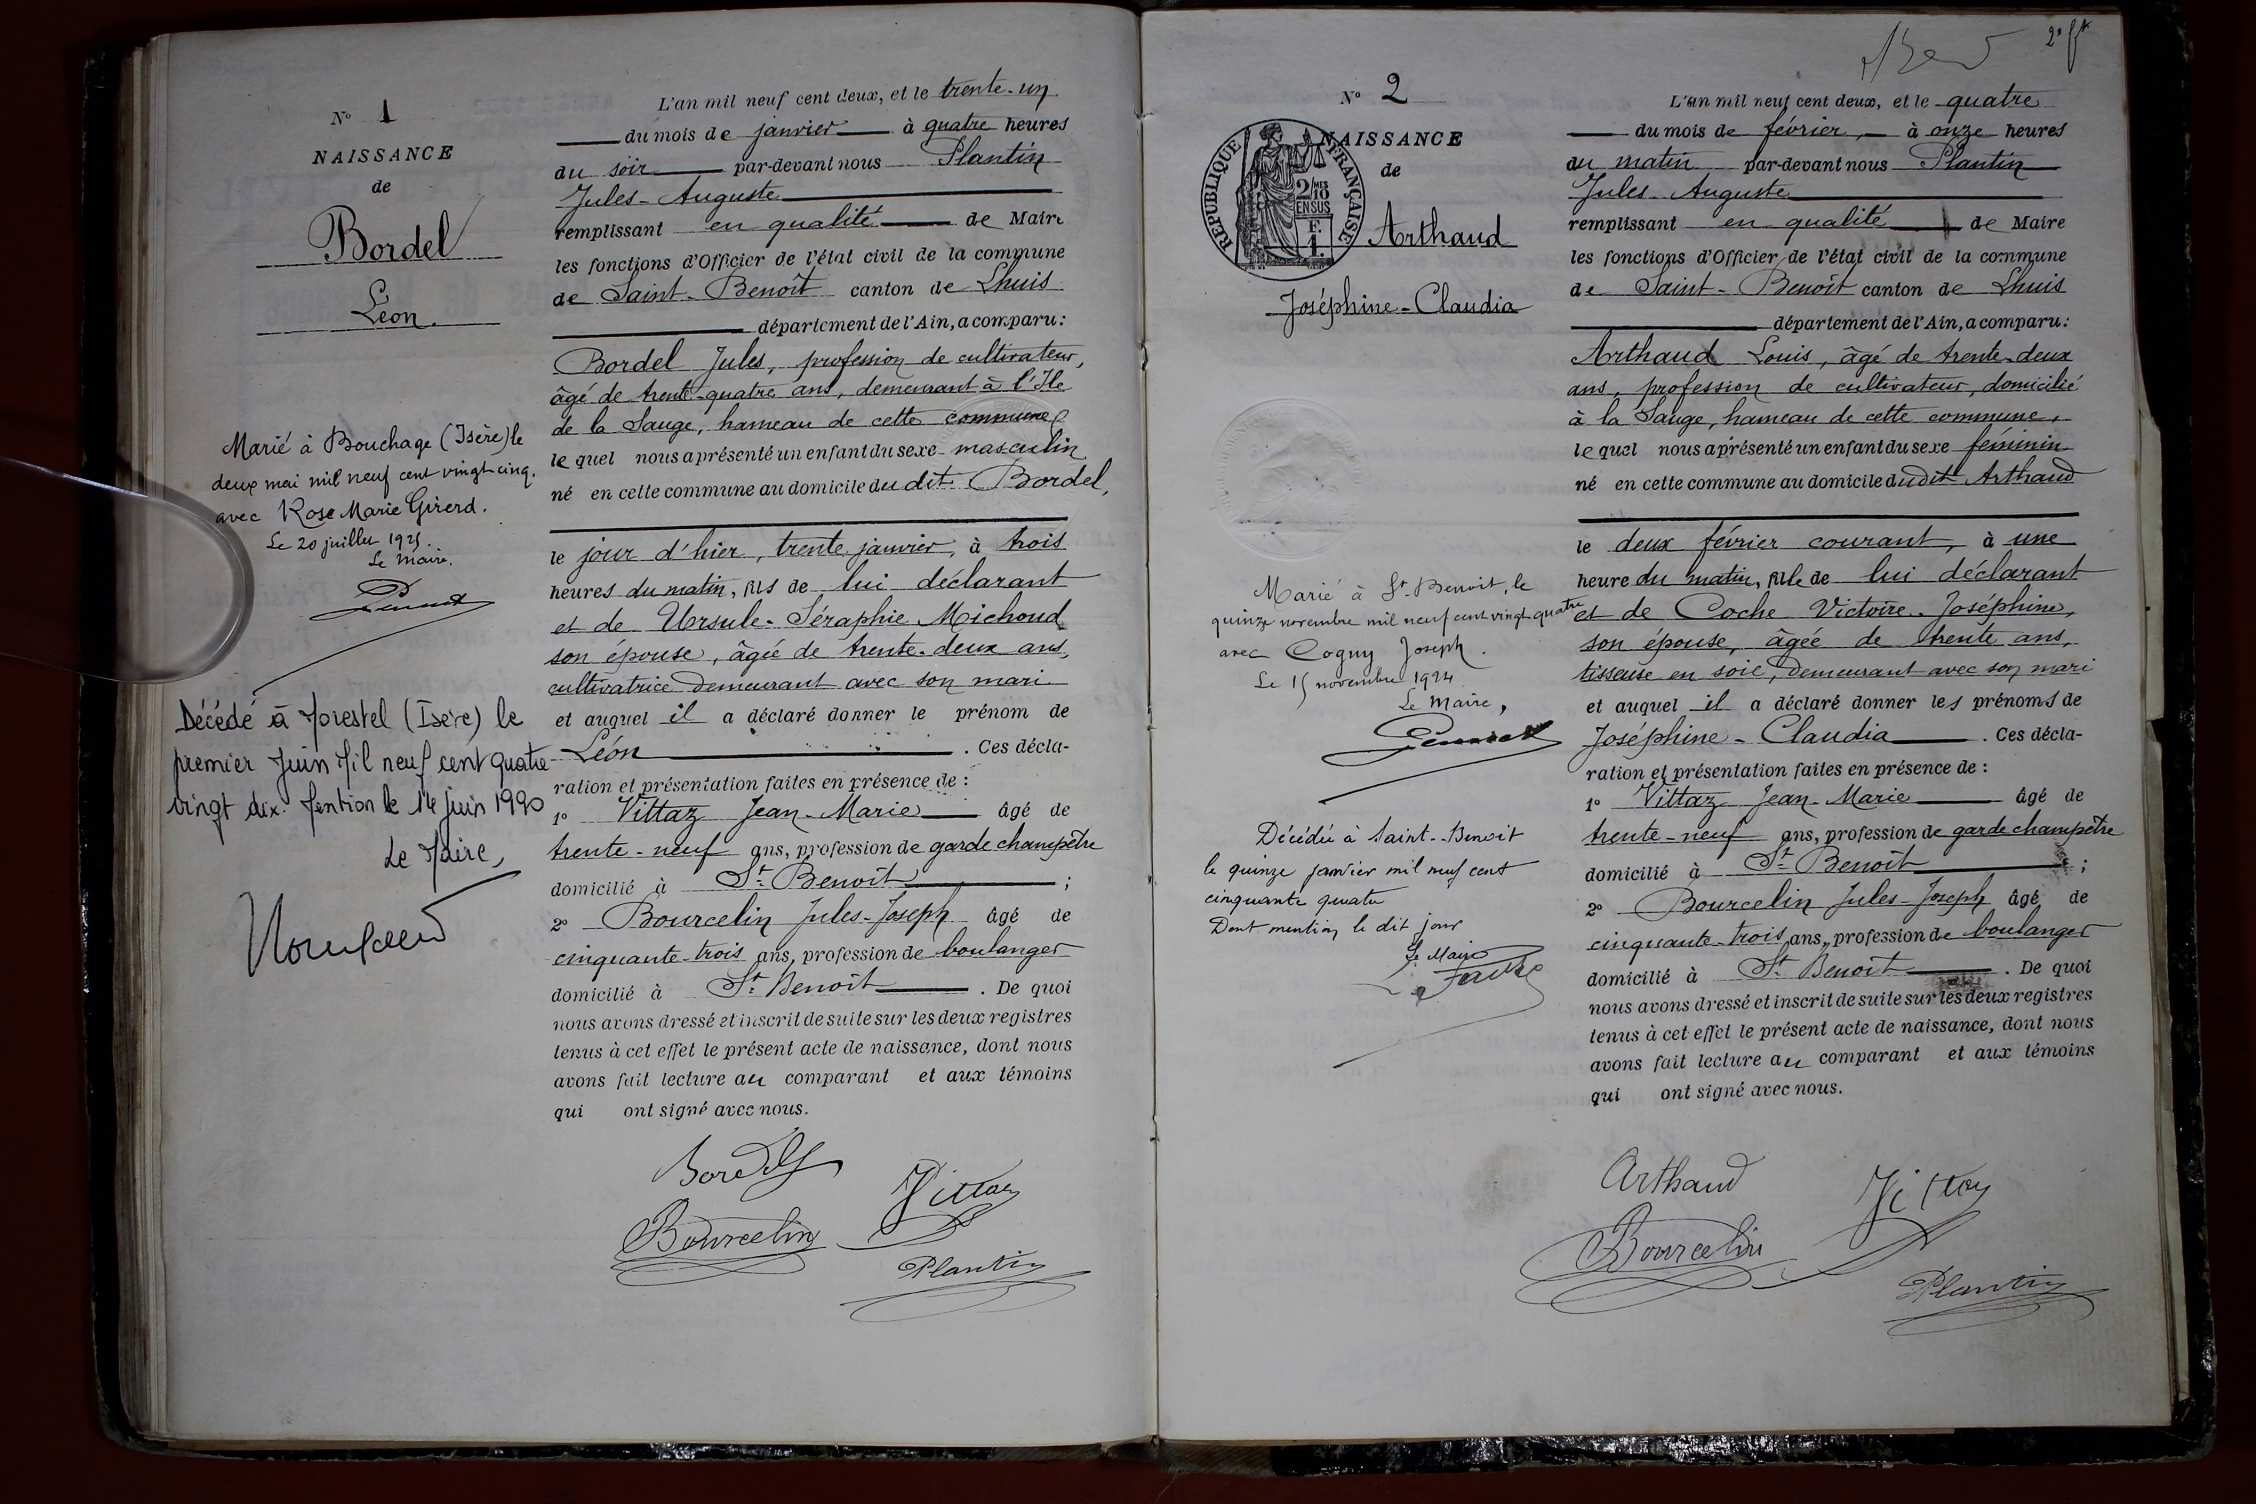 N° 1
NAISSANCE
de
Bordel
Léon.
Marié à Bouchage (Isère) le
deux mai mil neuf cent vingt cinq.
avec Rose Marie Girerd.
Le 20 juillet 1925.
Le Maire.
Décédé à Morestel (Isère) le
premier Juin Mil neuf cent quatre
vingt dix. Mention le 14 Juin 1990
Le Maire,
L'an mil neuf cent deux, et le trente-un
du mois de janvier à quatre heures
du soir par-devant nous Plantin
Jules-Auguste
remplissant en qualité de Maire
les fonctions d'Officier de l'état civil de la commune
de Saint-Benoît canton de Lhuis
département de l'Ain, a comparu:
Bordel Jules, profession de cultivateur,
âgé de trente-quatre ans, demeurant à l'Ile
de la Sauge, hameau de cette commune
le quel nous a présenté un enfant du sexe masculin
né en cette commune au domicile du dit Bordel,
le jour d'hier, trente janvier, à trois
heures du matin, fils de lui déclarant
et de Ursule-Séraphie Michoud
son épouse, âgée de trente-deux ans,
cultivatrice demeurant avec son mari
et auquel il a déclaré donner le prénom de
Léon. Ces décla-
ration et présentation faites en présence de :
1° Vittaz Jean-Marie âgé de
trente-neuf ans, profession de garde champêtre
domicilié à St Benoît ;
2° Bourcelin Jules-Joseph âgé de
cinquante-trois ans, profession de boulanger
domicilié à St Benoît. De quoi
nous avons dressé et inscrit de suite sur les deux registres
tenus à cet effet le présent acte de naissance, dont nous
avons fait lecture au comparant et aux témoins
qui ont signé avec nous.
Bordel
Vittaz
Bourcelin
Plantin
2e
N° 2
NAISSANCE
de
RÉPUBLIQUE FRANÇAISE
2/10MES
EN SUS
F.
1.
Arthaud
Joséphine-Claudia
Marié à St-Benoit, le
quinze novembre mil neuf cent vingt quatre
avec Cogny Joseph.
Le 15 novembre 1924
Le Maire,
Décédée à Saint-Benoit
le quinze janvier mil neuf cent
cinquante quatre
Dont mention le dit jour
Le Maire
L'an mil neuf cent deux, et le quatre
du mois de février, à onze heures
du matin par-devant nous Plantin
Jules-Auguste
remplissant en qualité de Maire
les fonctions d'Officier de l'état civil de la commune
de Saint-Benoît canton de Lhuis
département de l'Ain, a comparu:
Arthaud Louis, âgé de trente-deux
ans, profession de cultivateur, domicilié
à la Sauge, hameau de cette commune,
le quel nous a présenté un enfant du sexe féminin
né en cette commune au domicile dudit Arthaud
le deux février courant, à une
heure du matin, fille de lui déclarant
et de Coche Victoire-Joséphine,
son épouse, âgée de trente ans,
tisseuse en soie, demeurant avec son mari
et auquel il a déclaré donner les prénoms de
Joséphine-Claudia. Ces décla-
ration et présentation faites en présence de :
1° Vittaz Jean-Marie âgé de
trente-neuf ans, profession de garde champêtre
domicilié à St Benoît ;
2° Bourcelin Jules-Joseph âgé de
cinquante-trois ans, profession de boulanger
domicilié à St Benoît. De quoi
nous avons dressé et inscrit de suite sur les deux registres
tenus à cet effet le présent acte de naissance, dont nous
avons fait lecture au comparant et aux témoins
qui ont signé avec nous.
Arthaud
Vittaz
Bourcelin
Plantin